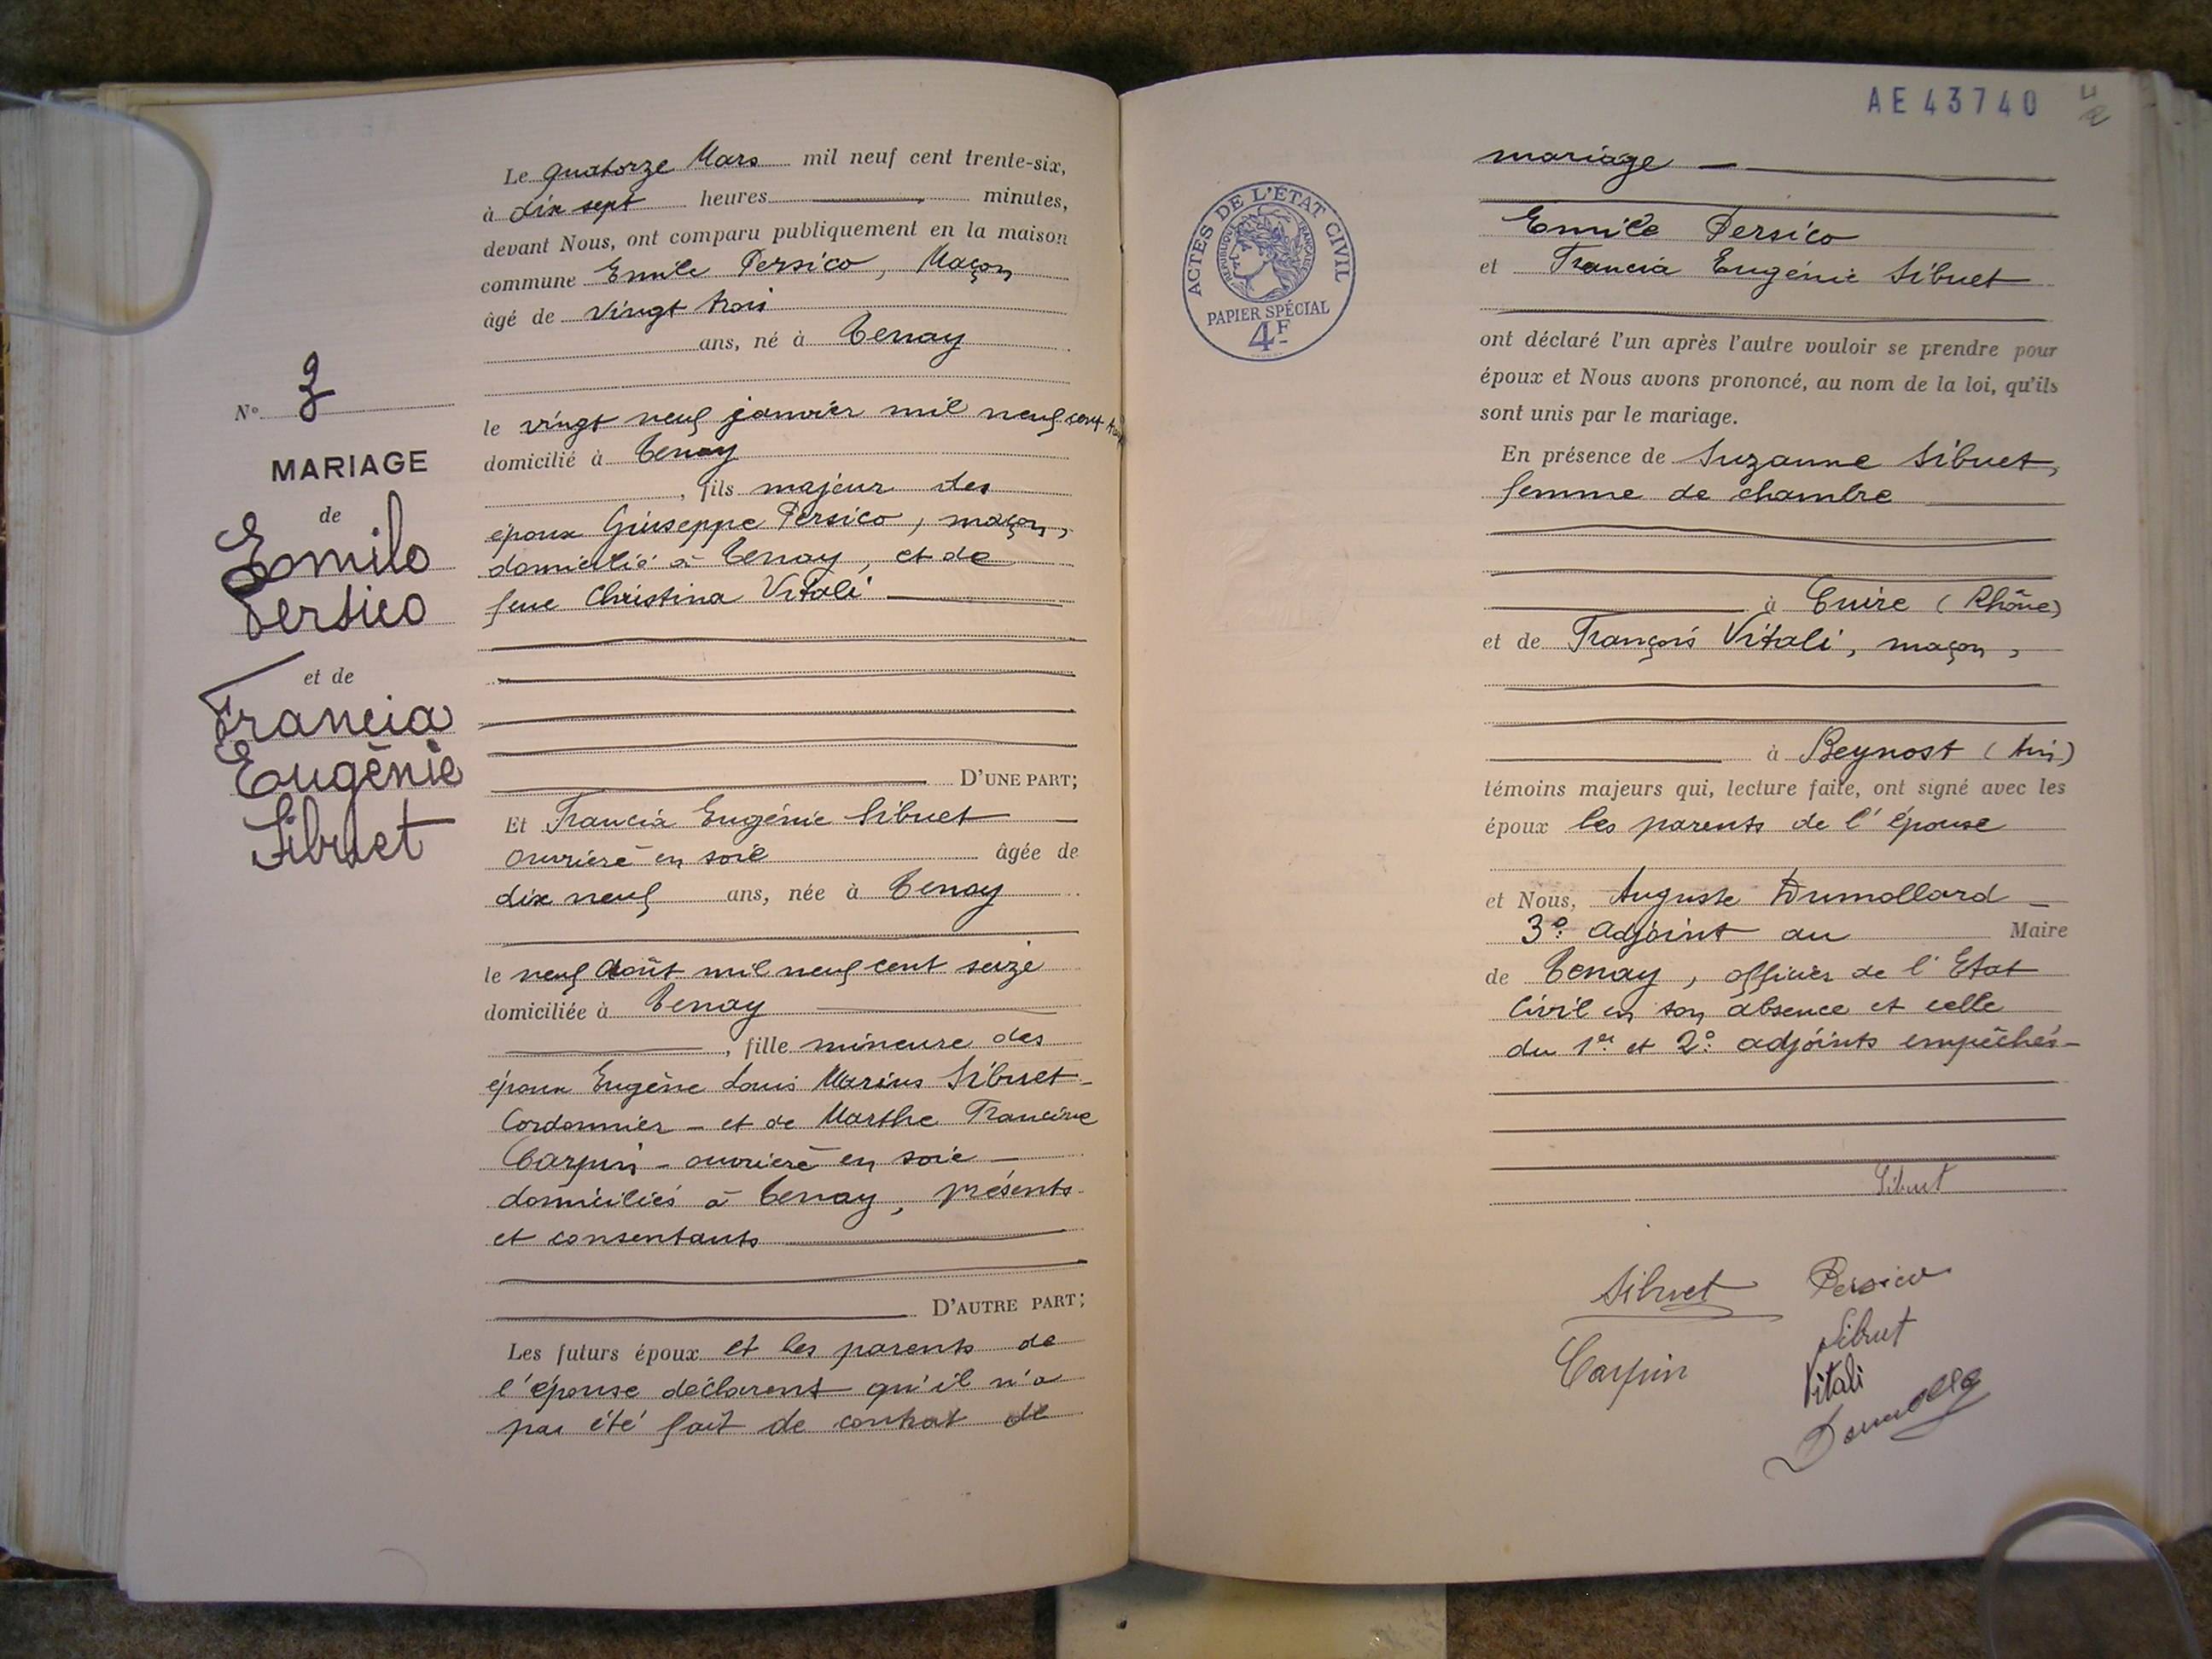 Le quatorze Mars mil neuf cent trente-six,
à dix sept heures minutes,
devant Nous, ont comparu publiquement en la maison
commune Emile Persico, Maçon
âgé de vingt trois
ans, né à Tenay
le vingt neuf janvier mil neuf cent
domicilié à Tenay
, fils majeur des
époux Giuseppe Persico, maçon,
domicilié à Tenay, et de
feue Christina Vitali
D'UNE PART;
Et Francia Eugénie Sibuet
ouvrière en soie âgée de
dix neuf ans, née à Tenay
le neuf Août mil neuf cent seize
domiciliée à Tenay
, fille mineure des
époux Eugène Louis Marius Sibuet-
Cordonnier - et de Marthe Francine
Carpin - ouvrière en soie -
domiciliés à Tenay, présents
et consentants
D'AUTRE PART;
Les futurs époux et les parents de
l'épouse déclarent qu'il n'a
pas été fait de contrat de
N°
MARIAGE
de
Emile
Persico
et de
Francia
Eugénie
Sibuet
AE 43740
ACTES DE L'ÉTAT CIVIL
RÉPUBLIQUE FRANÇAISE
PAPIER SPÉCIAL
4F
mariage -
Emile Persico
et Francia Eugénie Sibuet
ont déclaré l'un après l'autre vouloir se prendre pour
époux et Nous avons prononcé, au nom de la loi, qu'ils
sont unis par le mariage.
En présence de Suzanne Sibuet,
femme de chambre
à Cuire (Rhône)
et de François Vitali, maçon,
à Beynost (Ain)
témoins majeurs qui, lecture faite, ont signé avec les
époux les parents de l'épouse
et Nous, Auguste Dumollard -
3e adjoint au Maire
de Tenay, officier de l'Etat
Civil en son absence et celle
du 1er et 2e adjoints empêchés-
Sibuet
Sibuet Persico
Sibuet
Carpin
Vitali